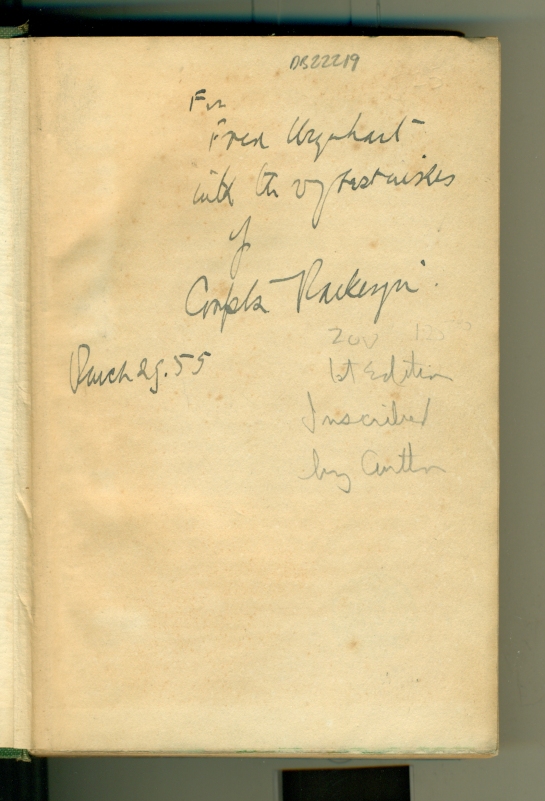 DB22219
For
Fred Urquhart
with the very best wishes
of
Compton Mackenzie.
March 29.55
200
1st Edition
Inscribed
by Author